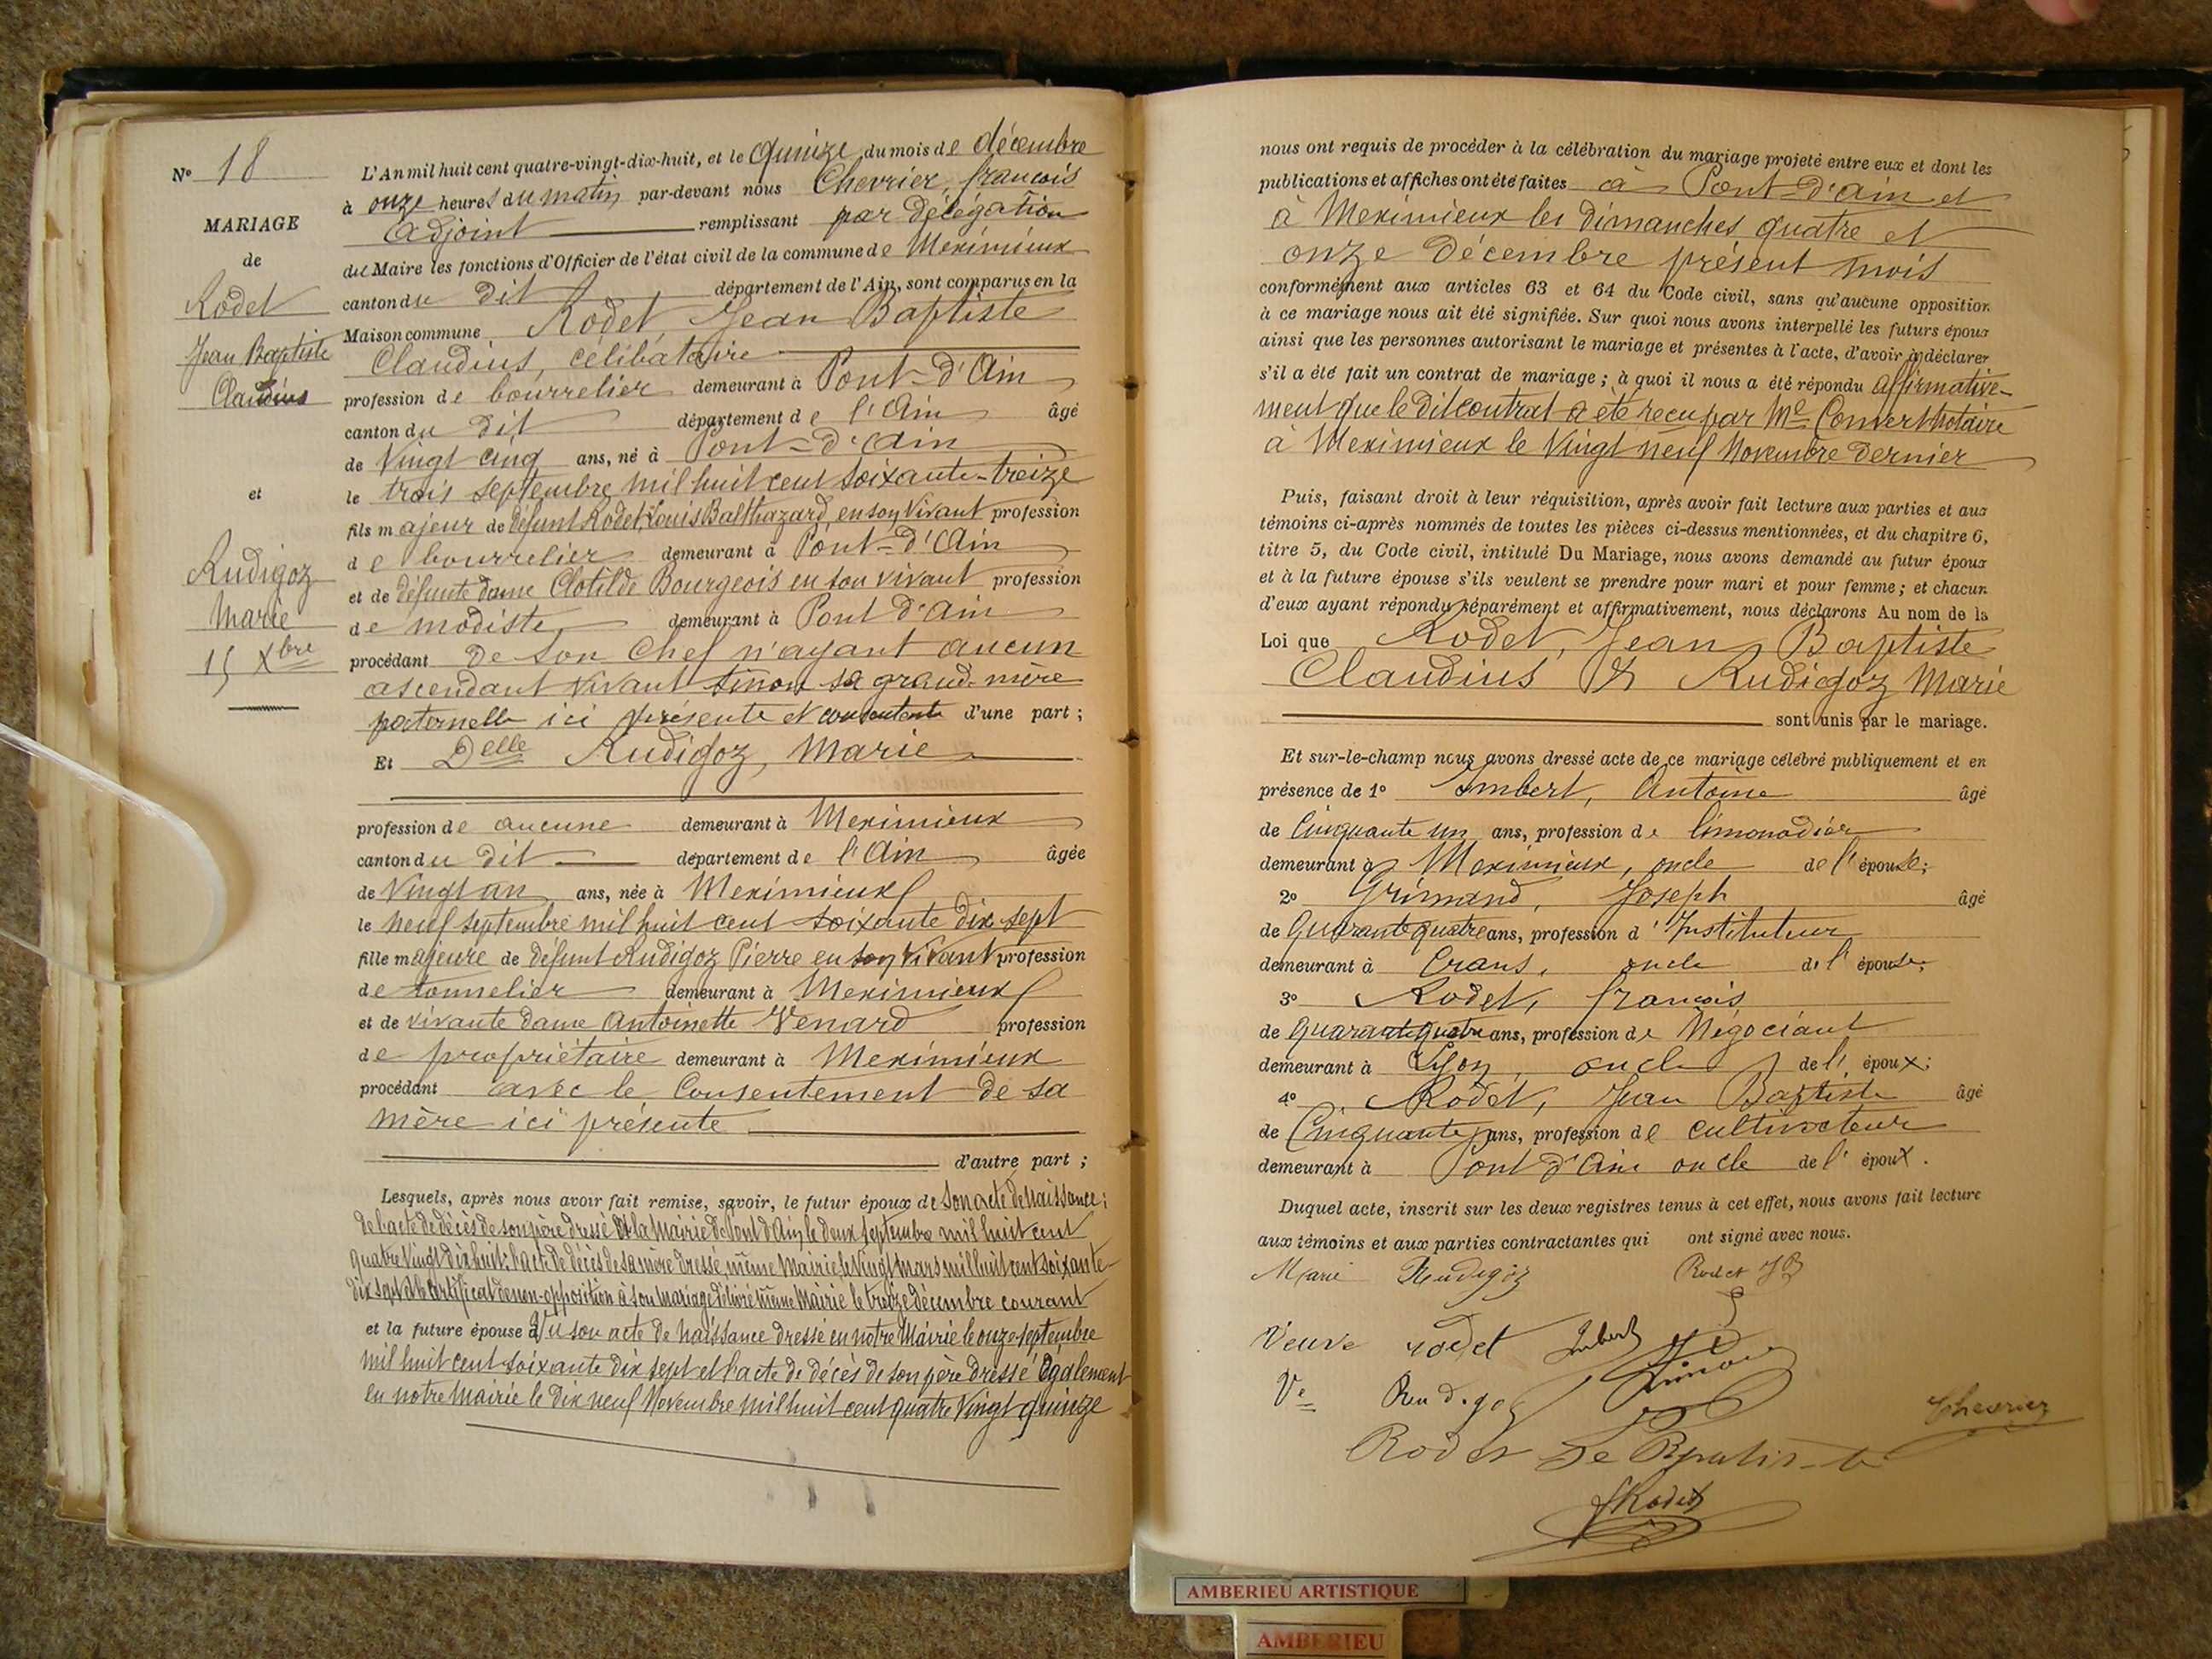 N° 18
MARIAGE
de
Rodet
Jean Baptiste
Claudius
et
Rudigoz
Marie
15 Xbre
L'An mil huit cent quatre-vingt-dix-huit, et le quinze du mois de décembre
à onze heures du matin par-devant nous Chevrier, françois
adjoint remplissant par délégation
du Maire les fonctions d'Officier de l'état civil de la commune de Meximieux
canton du dit département de l'Ain, sont comparus en la
Maison commune Rodet Jean Baptiste
Claudius, célibataire
profession de bourrelier demeurant à Pont-d'Ain
canton du dit département de l'Ain âgé
de Vingt cinq ans, né à Pont-d'Ain
le trois septembre mil huit cent soixante-treize
fils majeur de défunt Rodet, Louis Balthazard, en son Vivant profession
de bourrelier demeurant à Pont-d'Ain
et de défunte dame Clotilde Bourgeois en son vivant profession
de modiste demeurant à Pont d'Ain
procédant de son Chef n'ayant aucun
ascendant vivant sinon sa grand-mère
paternelle ici présente et consentente d'une part ;
Et Delle Rudigoz, Marie
profession de aucune demeurant à Meximieux
canton du dit département de l'Ain âgée
de Vingt an ans, née à Meximieux
le neuf septembre mil huit cent soixante dix sept
fille majeure de défunt Rudigoz Pierre en son Vivant profession
de tonnelier demeurant à Meximieux
et de vivante dame Antoinette Venard profession
de propriétaire demeurant à Meximieux
procédant avec le Consentement de sa
mère ici présente
d'autre part ;
Lesquels, après nous avoir fait remise, savoir, le futur époux de son acte de Naissance ;
de l'acte de décès de son père dressé à la Mairie de Pont d'Ain le deux septembre mil huit cent
quatre Vingt dix huit ; l'acte de décès de sa mère dressé même Mairie le Vingt mars mil huit cent soixante-
dix sept et le certificat de non-opposition à son Mariage délivré même Mairie le treize décembre courant
et la future épouse Vu son acte de Naissance dressé en notre Mairie le onze septembre
mil huit cent soixante dix sept et l'acte de décès de son père dressé également
en notre Mairie le dix neuf Novembre mil huit cent quatre Vingt quinze
nous ont requis de procéder à la célébration du mariage projeté entre eux et dont les
publications et affiches ont été faites à Pont-d'Ain et
à Meximieux les dimanches quatre et
onze décembre présent mois
conformément aux articles 63 et 64 du Code civil, sans qu'aucune opposition
à ce mariage nous ait été signifiée. Sur quoi nous avons interpellé les futurs époux
ainsi que les personnes autorisant le mariage et présentes à l'acte, d'avoir à déclarer
s'il a été fait un contrat de mariage ; à quoi il nous a été répondu affirmative-
ment que le dit contrat a été reçu par Me Convert notaire
à Meximieux le Vingt neuf Novembre dernier
Puis, faisant droit à leur réquisition, après avoir fait lecture aux parties et aux
témoins ci-après nommés de toutes les pièces ci-dessus mentionnées, et du chapitre 6,
titre 5, du Code civil, intitulé Du Mariage, nous avons demandé au futur époux
et à la future épouse s'ils veulent se prendre pour mari et pour femme ; et chacun
d'eux ayant répondu séparément et affirmativement, nous déclarons Au nom de la
Loi que Rodet, Jean Baptiste
Claudius & Rudigoz Marie
sont unis par le mariage.
Et sur-le-champ nous avons dressé acte de ce mariage célébré publiquement et en
présence de 1° Imbert, Antoine âgé
de Cinquante un ans, profession de limonadier
demeurant à Meximieux, oncle de l'épouse ;
2° Grimand, Joseph âgé
de Quarante quatre ans, profession d'Instituteur
demeurant à Crans, oncle de l'épouse ;
3° Rodet, françois
de quarante quatre ans, profession de Négociant
demeurant à Lyon, oncle de l'époux ;
4° Rodet, Jean Baptiste âgé
de Cinquante ans, profession de cultivateur
demeurant à Pont d'Ain oncle de l'époux.
Duquel acte, inscrit sur les deux registres tenus à cet effet, nous avons fait lecture
aux témoins et aux parties contractantes qui ont signé avec nous.
Marie Rudigoz Rodet JB
Veuve rodet Imbert
Ve Rudigoz
Chevrier
Rodet
J Rodet
AMBERIEU ARTISTIQUE
AMBERIEU